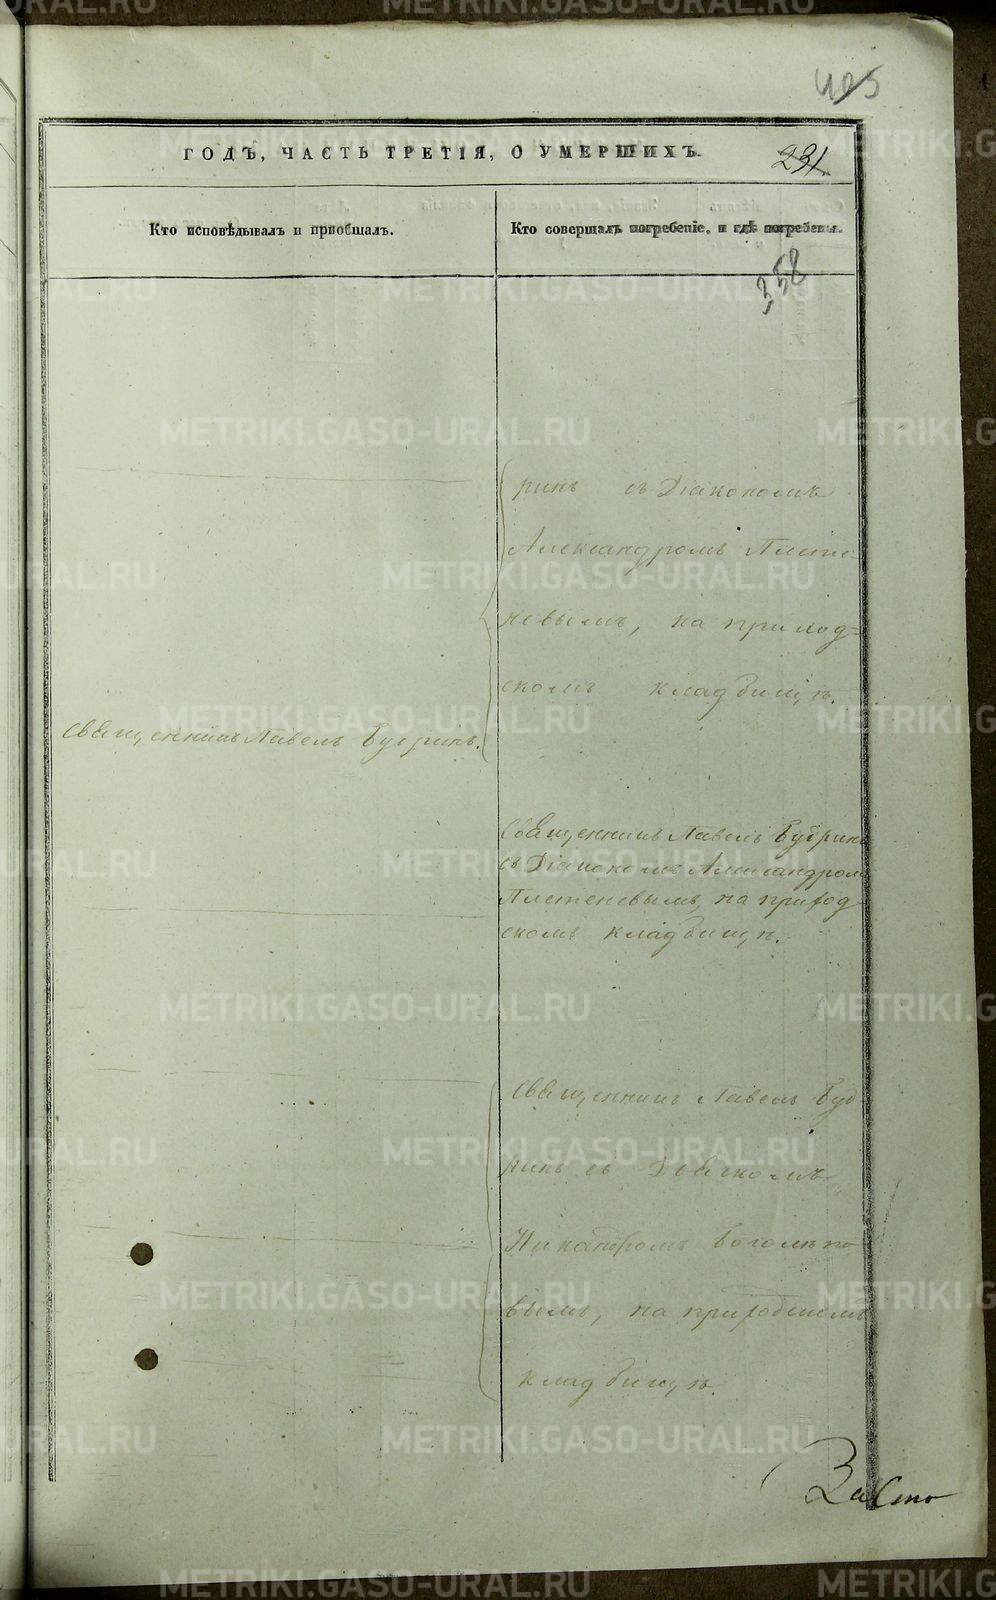 405
ГОДЪ, ЧАСТЬ ТРЕТІЯ, О УМЕРШИХЪ.
231.
Кто исповѣдывалъ и пріобщалъ.
Кто совершалъ погребеніе, и гдѣ погребены.
358
ринъ съ Діакономъ
Александромъ Плете-
невымъ, на приход-
скомъ кладбищѣ.
Священникъ Павелъ Будринъ.
Священникъ Павелъ Будринъ
съ Діакономъ Александромъ
Плетеневымъ, на приход
скомъ кладбищѣ.
Священникъ Павелъ Буд
ринъ съ Дьячкомъ
Никандромъ Боголѣпо
вымъ, на приходскомъ
кладбищѣ.
METRIKI.GASO-URAL.RU